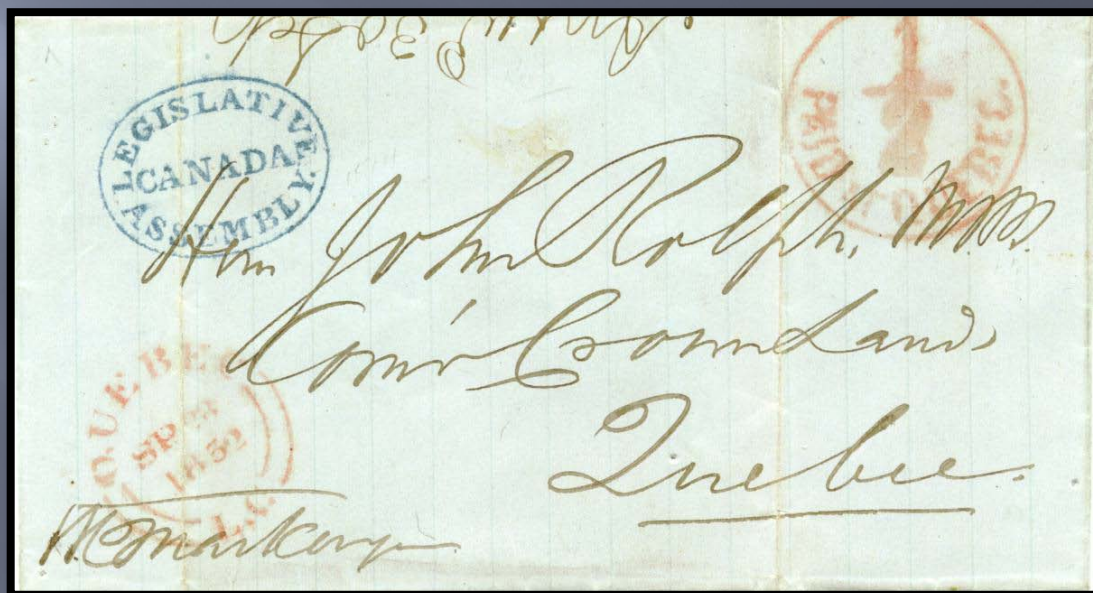 LEGISLATIVE
CANADA
ASSEMBLY.
PAID
QUEBEC.
Hon John Rolph, MPP.
Com'r Crown Lands
Quebec.
QUEBEC
SP
1852
L.C.